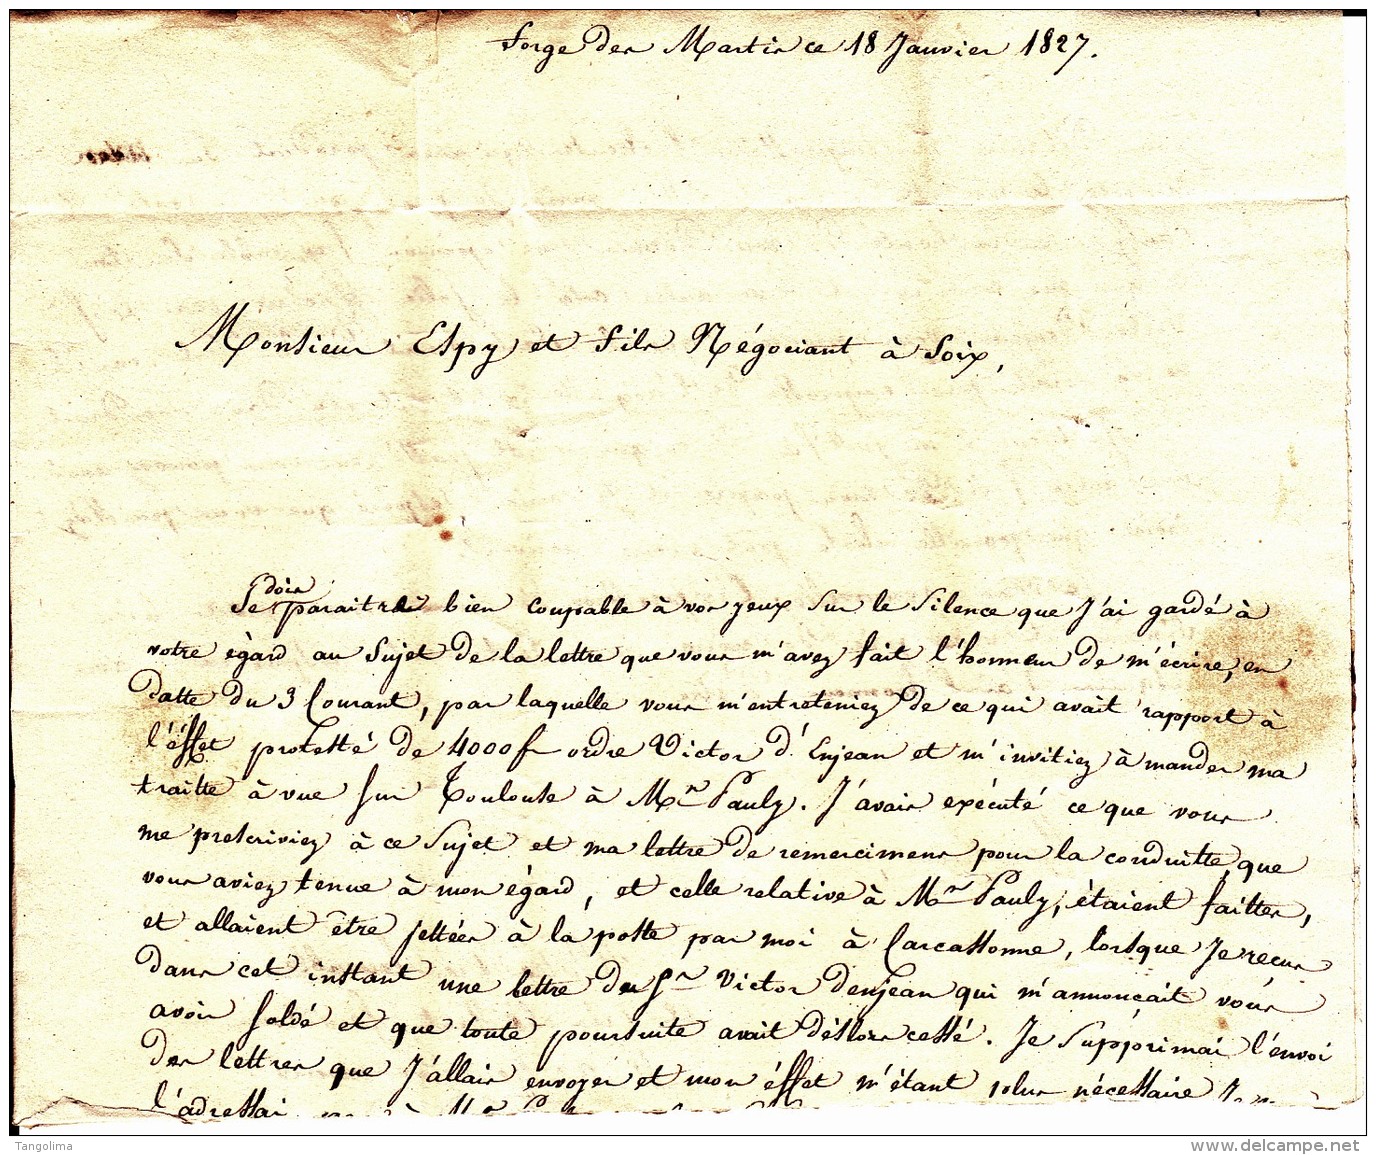 Forge des Martis ce 18 Janvier 1827.
Monsieur Espy et fils Négociant à Foix,
dois
Je paraitre bien coupable à vos yeux sur le silence que J'ai gardé à
votre ègard au sujet de la lettre que vous m'avez fait l'honneur de m'écrire, en
datte du 3 Courant, par laquelle vous m'entreteniez de ce qui avait rapport à
l'éffet protesté de 4000 f ordre Victor d'Enjean et m'invitiez à mander ma
traitte à vue sur Toulouse à Mr Pauly. J'avais exécuté ce que vous
me prescriviez à ce sujet et ma lettre de remercimens pour la conduitte, que
vous aviez tenue à mon égard, et celle relative à Mr Pauly, étaient faittes,
et allaient être jettées à la poste par moi à Carcassonne, lorsque Je reçus
dans cet instant une lettre du Sr Victor Denjean qui m'annonçait vous
avoir soldé et que toute poursuite avait déslors cessé. Je supprimai l'envoi
des lettres que J'allais envoyer et mon éffet m'étant plus nécessaire
l'adressai
Tangolima
www.delcampe.net